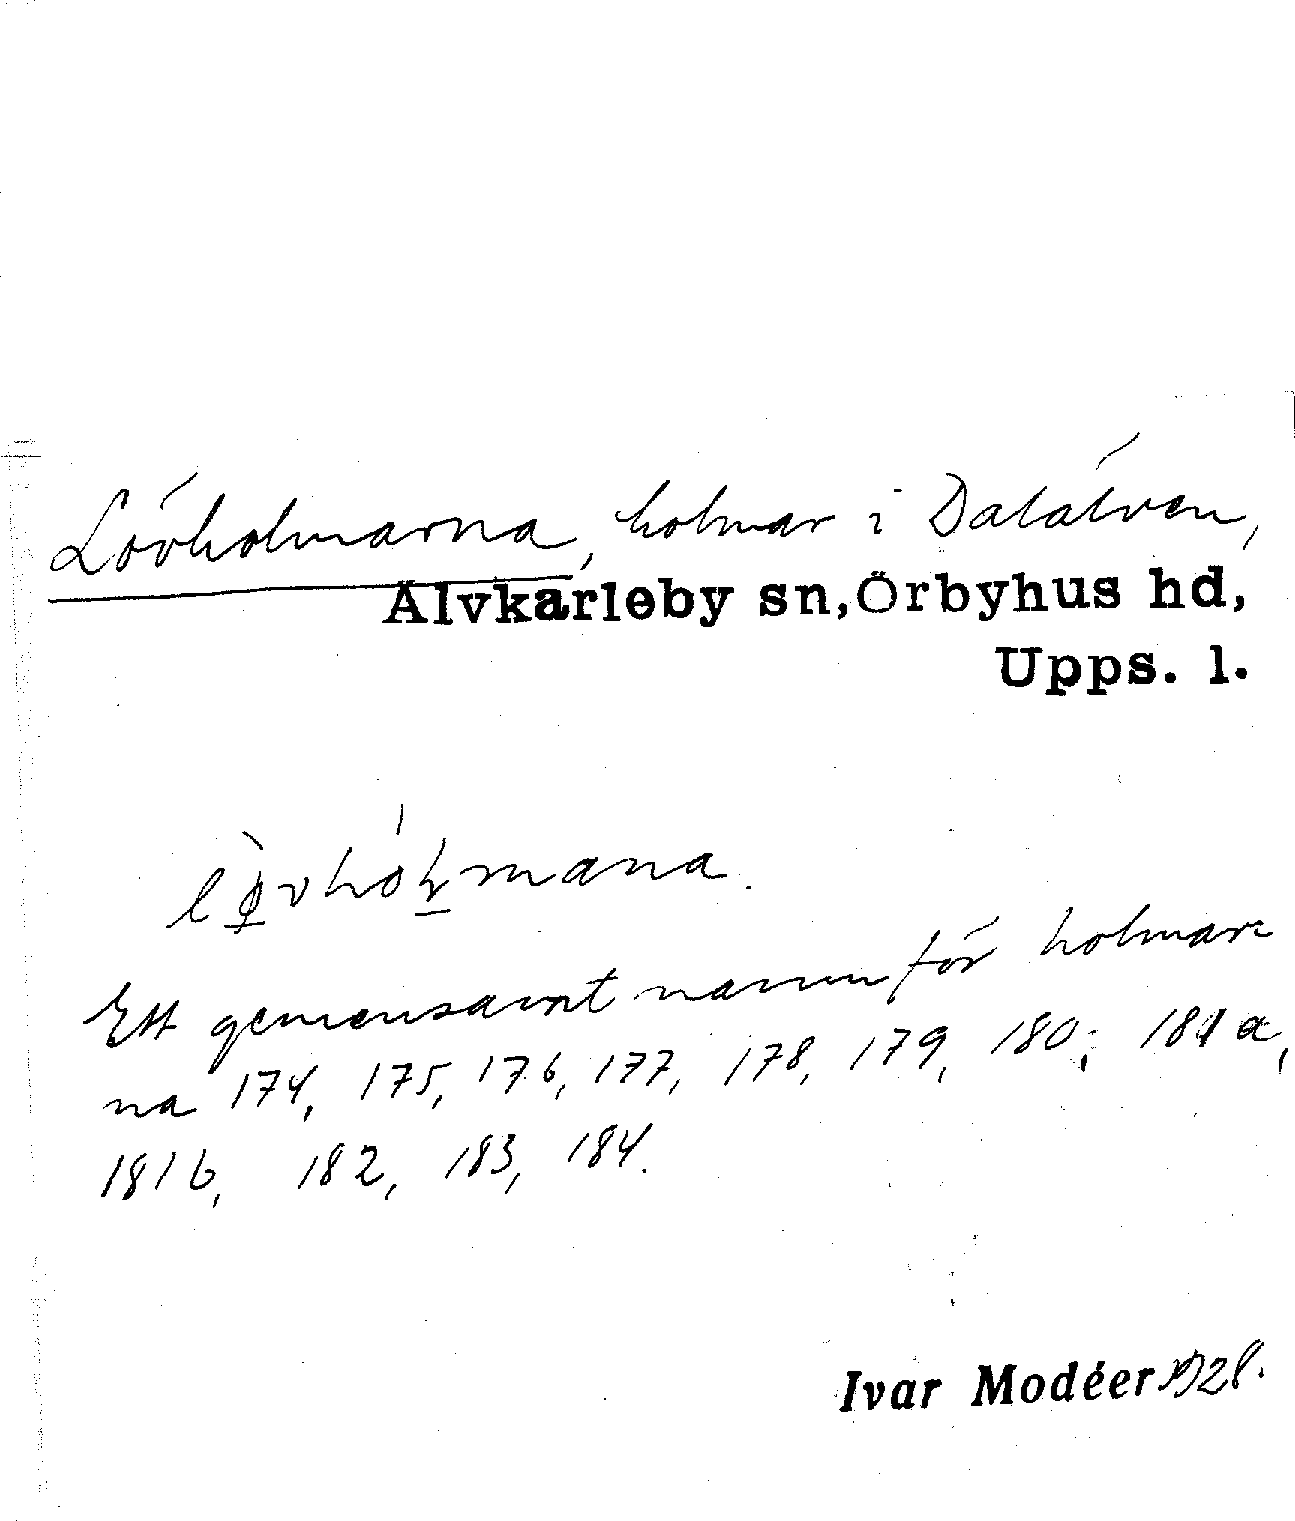 Lövholmarna, holmar i Dalälven,
Älvkarleby sn, Örbyhus hd,
Upps. l.
lø̀vhól̠mana.
Ett gemensamt namn för holmar-
na 174, 175, 176, 177, 178, 179, 180, 181 a,
181 b, 182, 183, 184.
Ivar Modéer 1928.